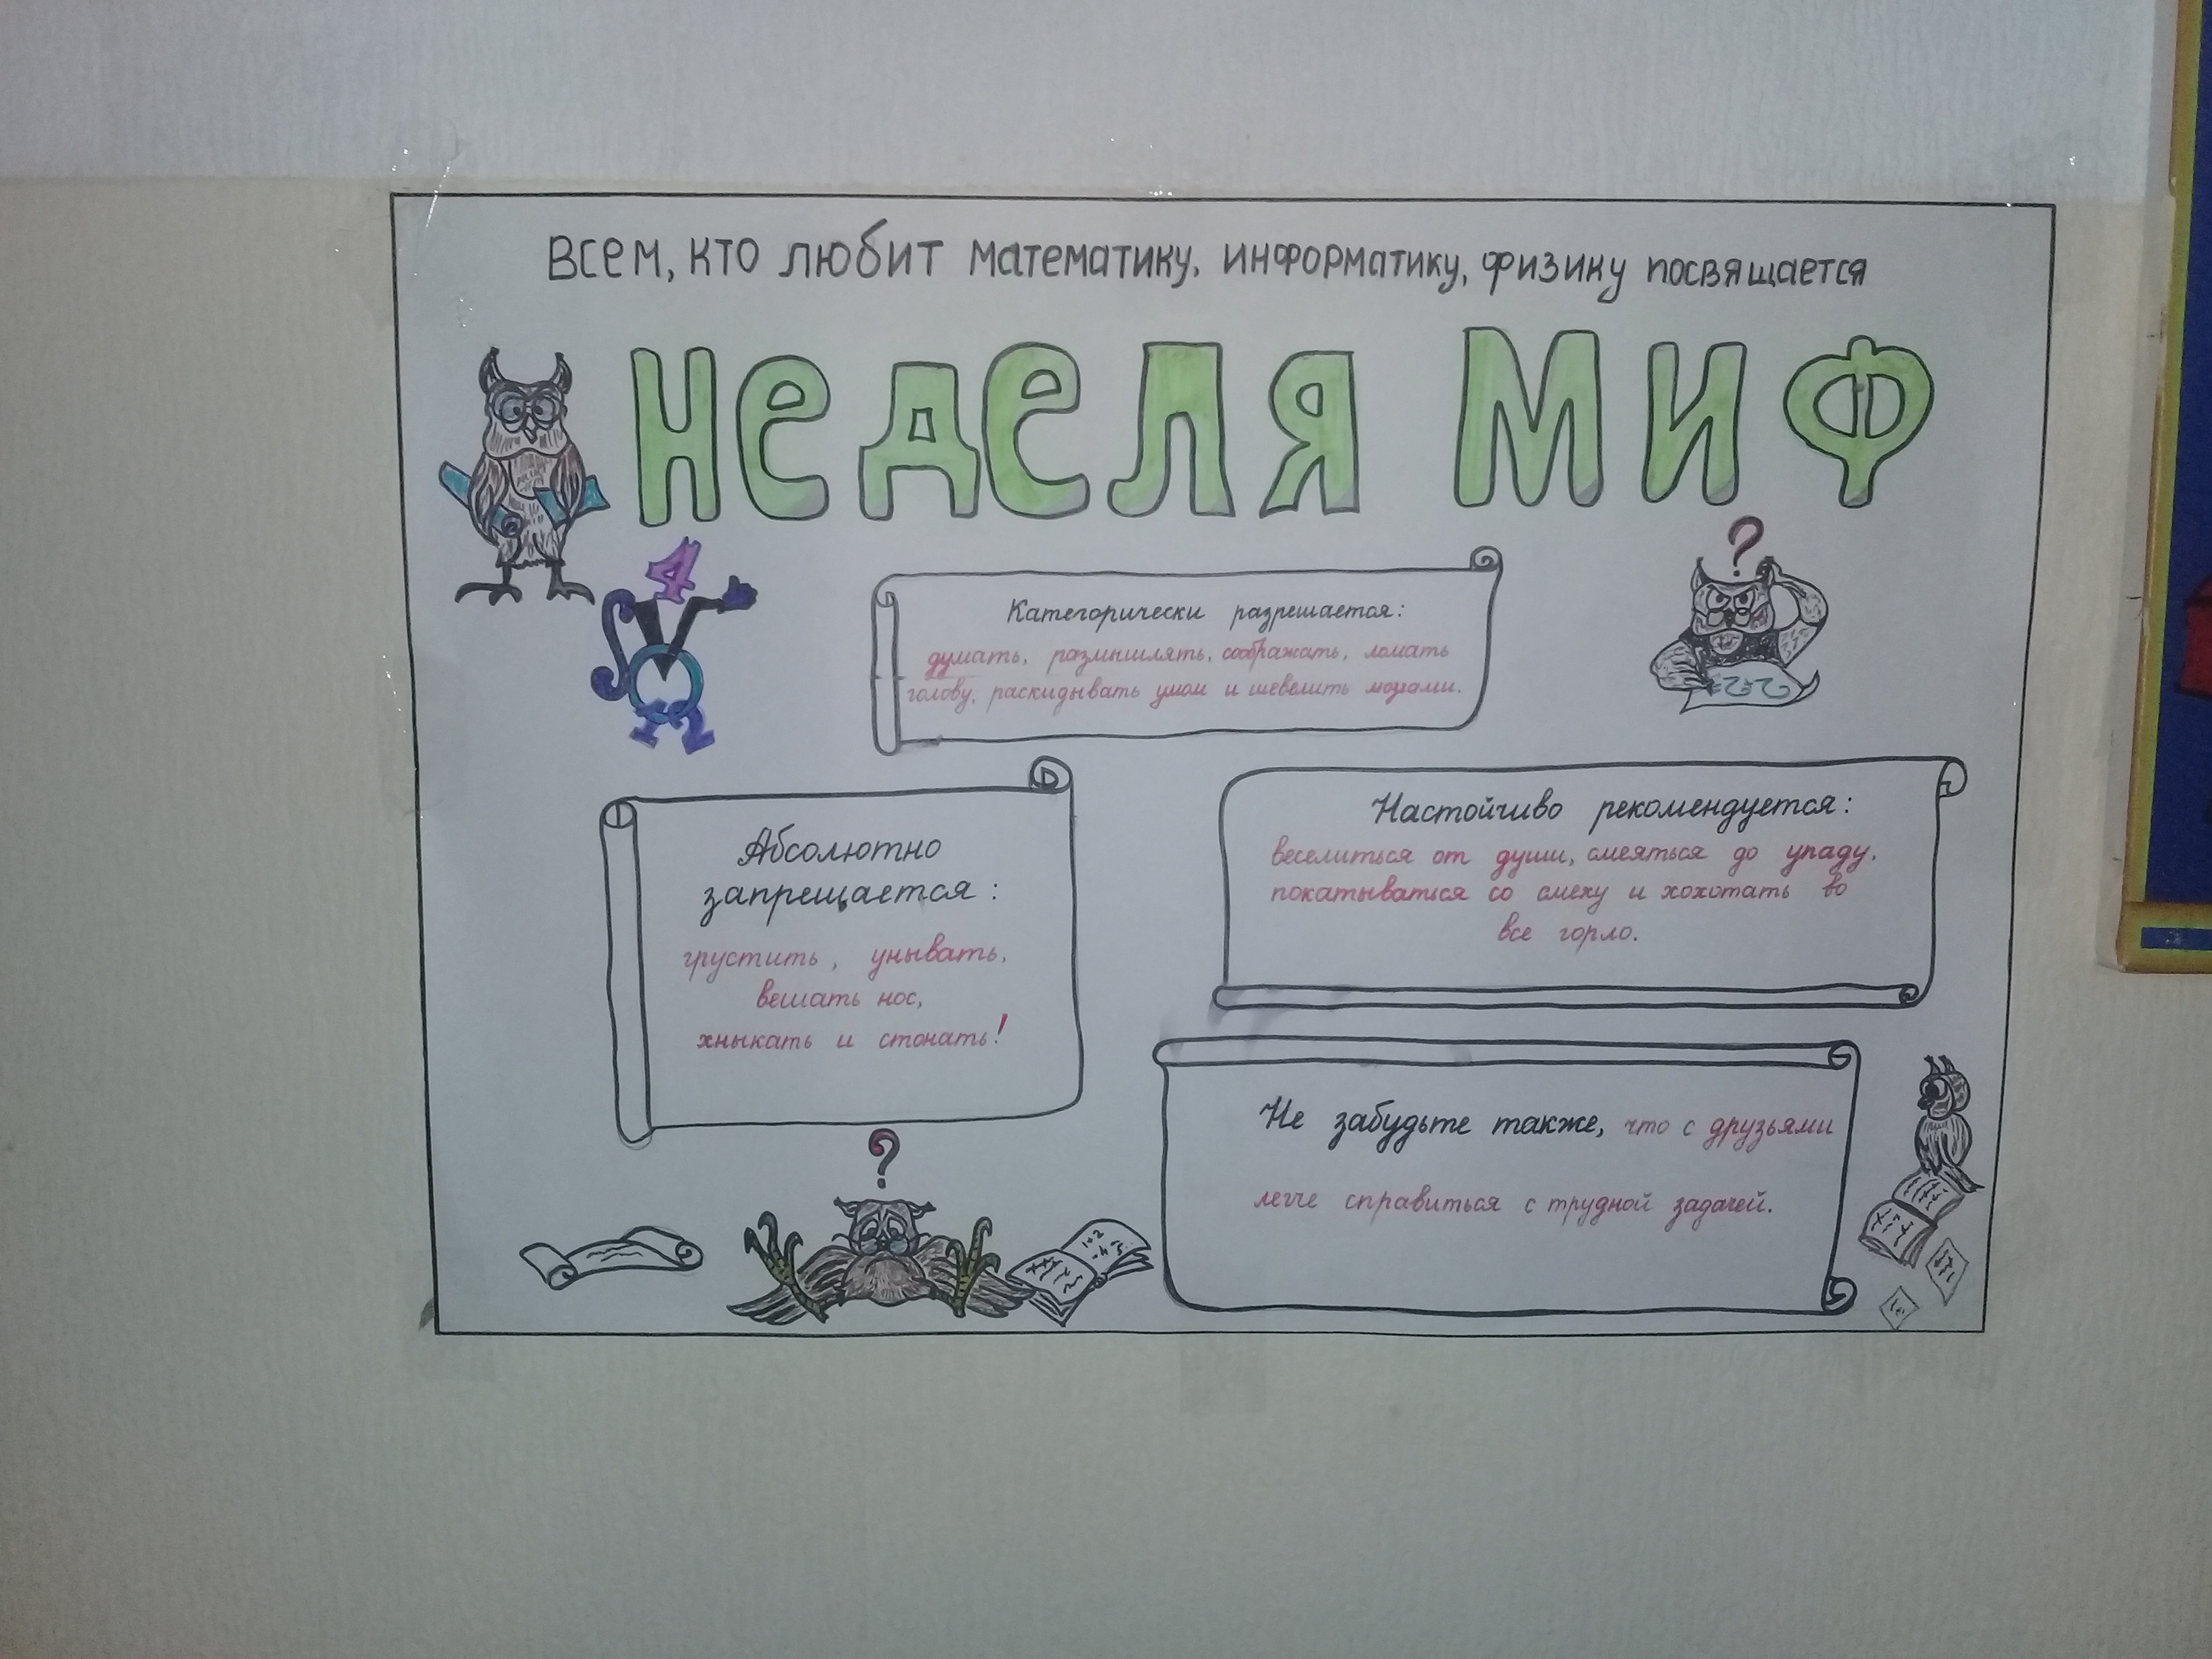 Всем, кто любит математику, информатику, физику посвящается
Неделя МИФ
4
?
Категорически разрешается:
думать, размышлять, соображать, ломать
голову, раскидывать умом и шевелить мозгами.
Абсолютно
запрещается:
грустить, унывать,
вешать нос,
хныкать и стонать!
Настойчиво рекомендуется:
веселиться от души, смеяться до упаду,
покатываться со смеху и хохотать во
все горло.
Не забудьте также, что с друзьями
легче справиться с трудной задачей.
?